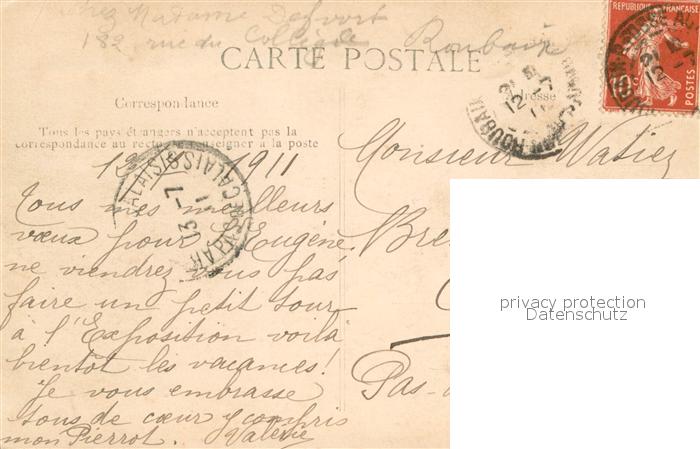 chez Madame Defvort
182 rue du Collège Roubaix
CARTE POSTALE
REPUBLIQUE FRANÇAISE
10c
POSTES
Correspondance
Adresse
Tous les pays étrangers n'acceptent pas la
correspondance au recto se renseigner à la poste
12 1911
Tous mes meilleurs
vœux pour St Eugène.
ne viendrez vous pas
faire un petit tour
à l'Exposition voilà
bientôt les vacances!
Je vous embrasse
tous de cœur y compris
mon Pierrot. Valérie
Monsieur Watiez
Bre
Pas-
ROUBAIX
CALAIS
13-7
11
privacy protection
Datenschutz